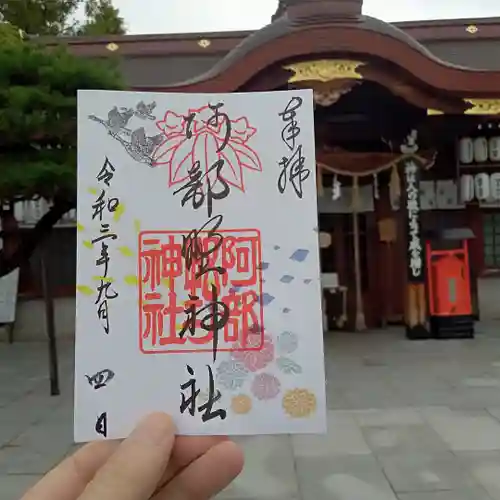 奉拝
阿部野神社
阿部野神社
令和三年九月四日